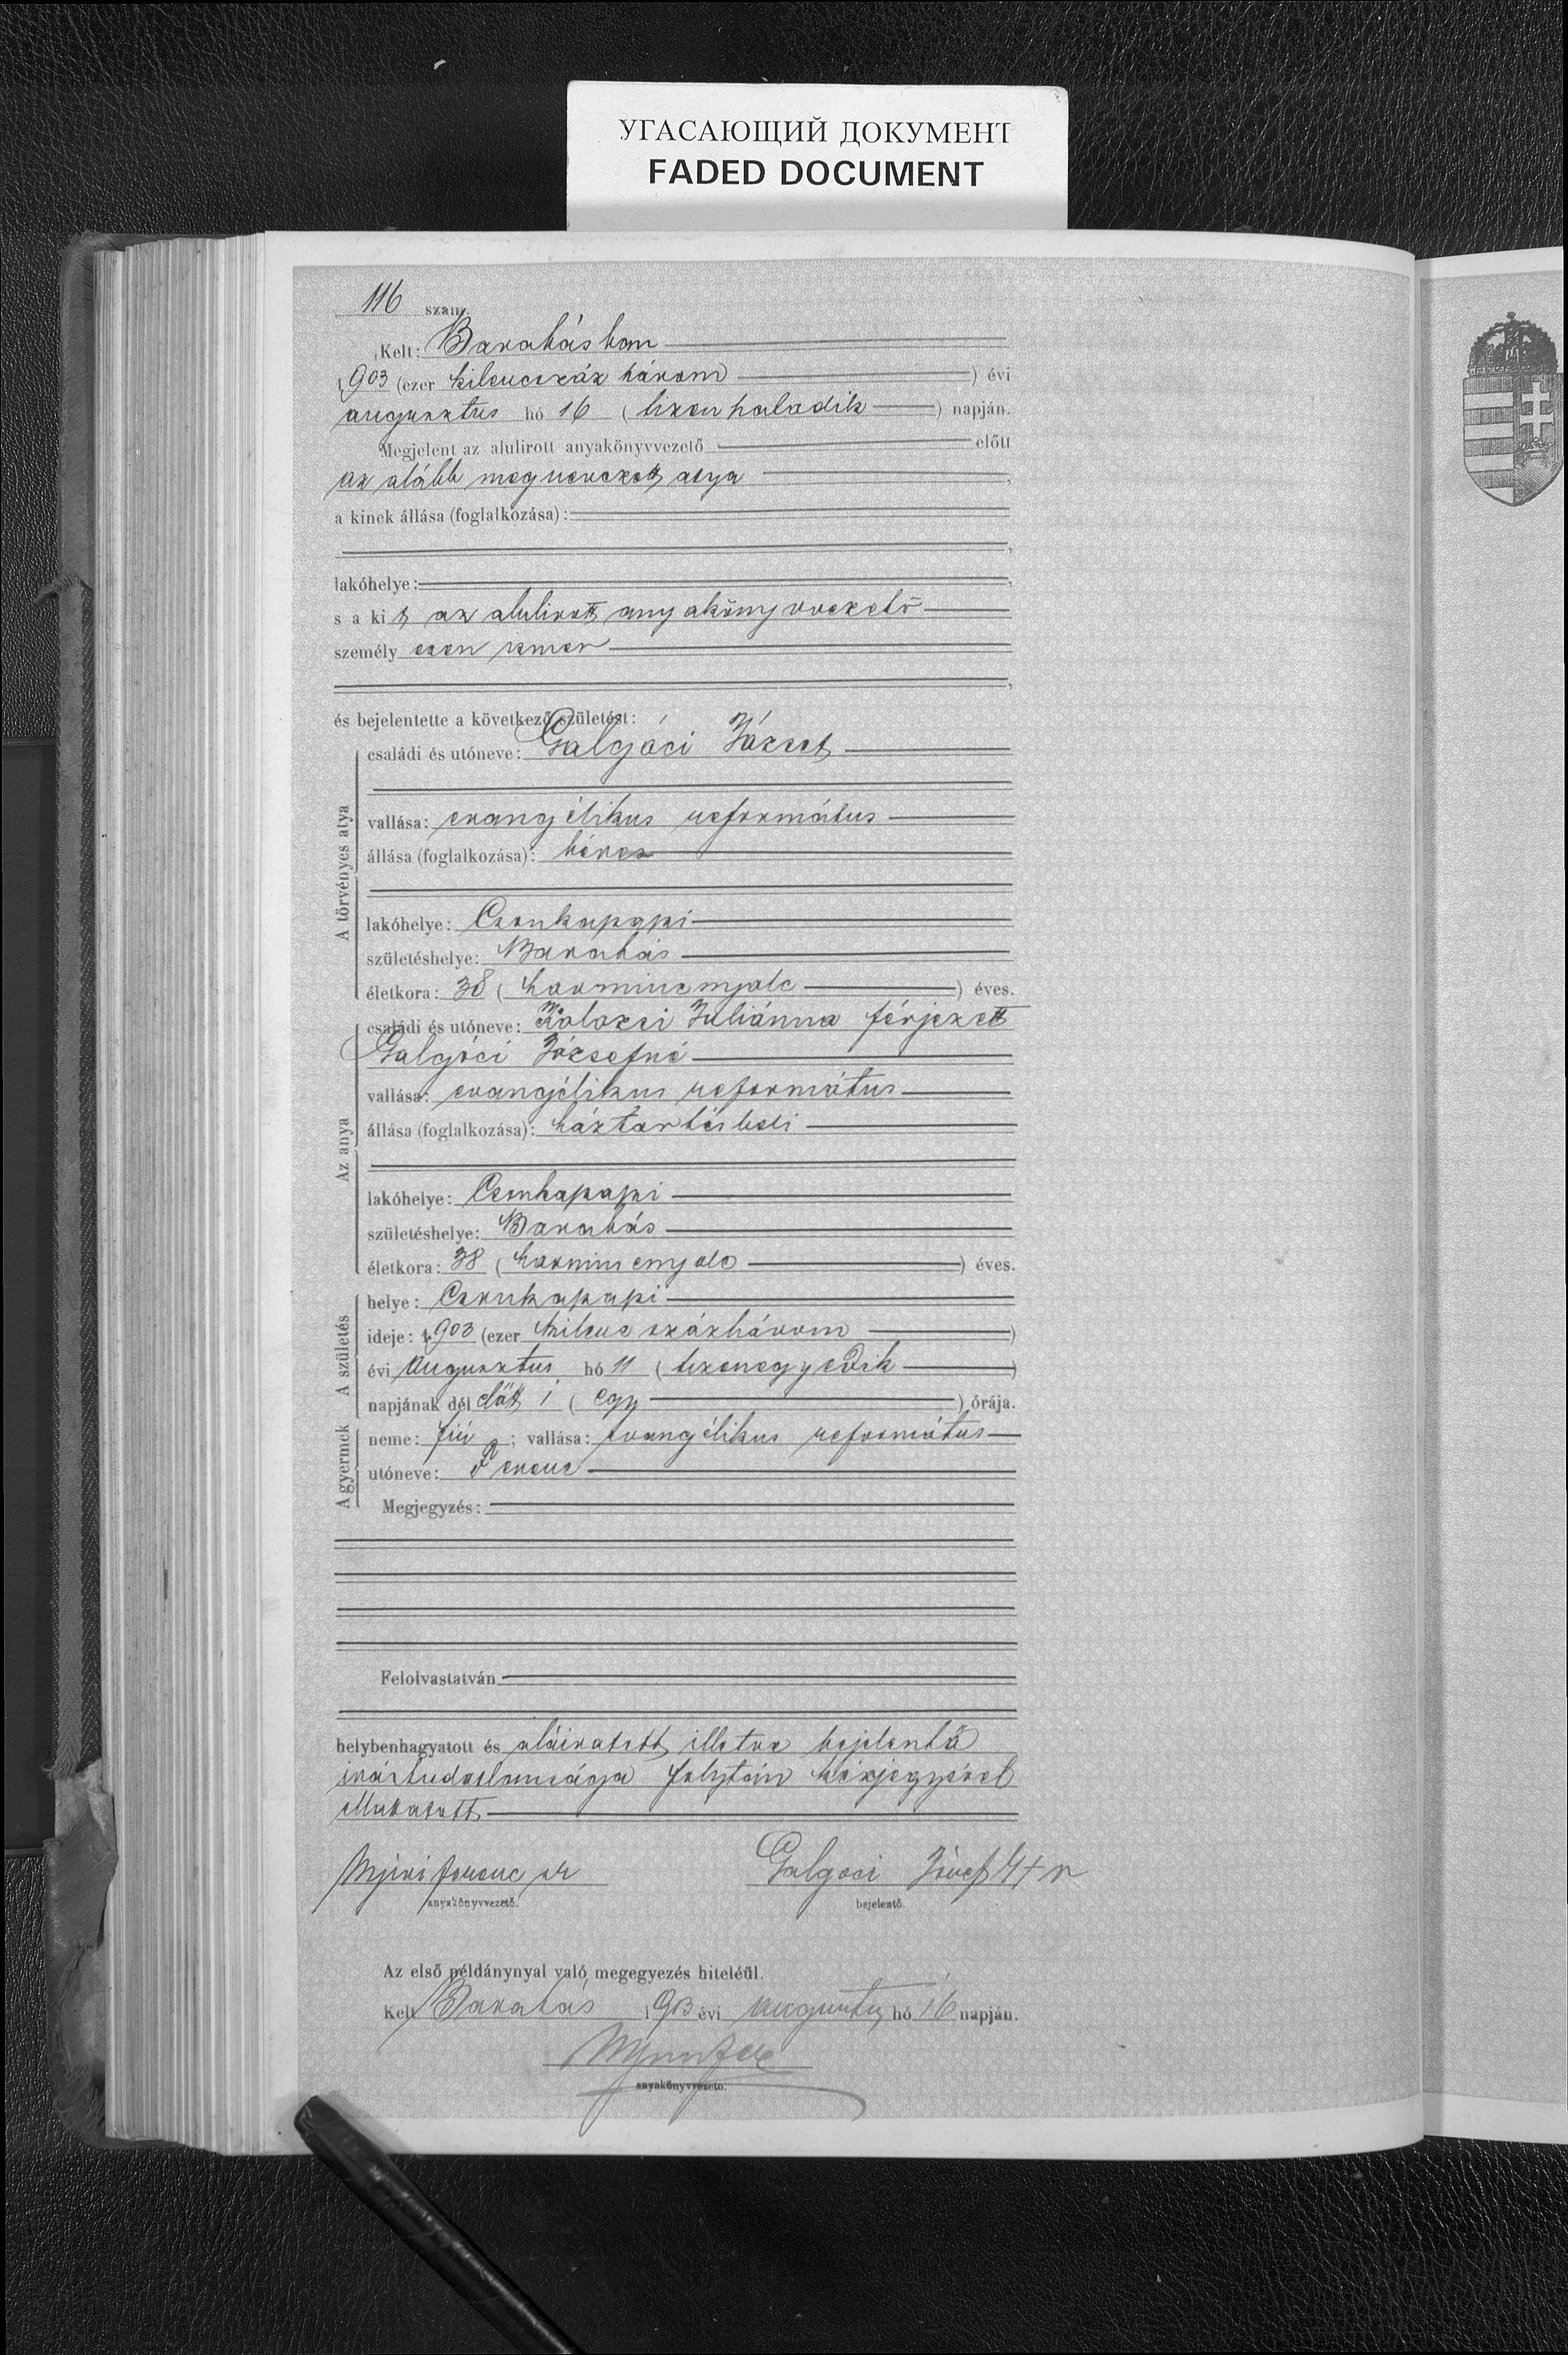 УГАСАЮЩИЙ ДОКУМЕНТ
FADED DOCUMENT
116 szám.
Kelt: Barabásban
1903 (ezer kilencszáz három) évi
augusztus hó 16 (tizenhatodik) napján.
Megjelent az alulirott anyakönyvvezető előtt
az alább megnevezett atya,
a kinek állása (foglalkozása):
lakóhelye:
s a kit az alulirott anyakönyvvezető
személyesen ismer
és bejelentette a következő születést:
A törvényes atya
családi és utóneve: Galgóci József
vallása: evangélikus református
állása (foglalkozása): béres
lakóhelye: Csonkapapi
születéshelye: Barabás
életkora: 38 (harmincnyolc) éves.
Az anya
családi és utóneve: Juliánna férjezett
Galgóci Józsefné
vallása: evangélikus református
állása (foglalkozása): háztartásbeli
lakóhelye: Csonkapapi
születéshelye: Barabás
életkora: 38 (harmincnyolc) éves.
A születés
helye: Csonkapapi
ideje: 1903 (ezer kilencszázhárom)
évi augusztus hó 11 (tizenegyedik)
napjának dél előtt 1 (egy) órája.
A gyermek
neme: fiú; vallása: evangélikus református
utóneve: Ferenc
Megjegyzés:
Felolvastatván
helybenhagyatott és aláiratott illetve bejelentő
irástudatlansága folytán kézjegyével
ellátatott
Ferenc
Galgoci József
anyakönyvvezető.
bejelentő.
Az első példánynyal való megegyezés hiteléül.
Kelt Barabás 1903 évi augusztus hó 16 napján.
anyakönyvvezető.